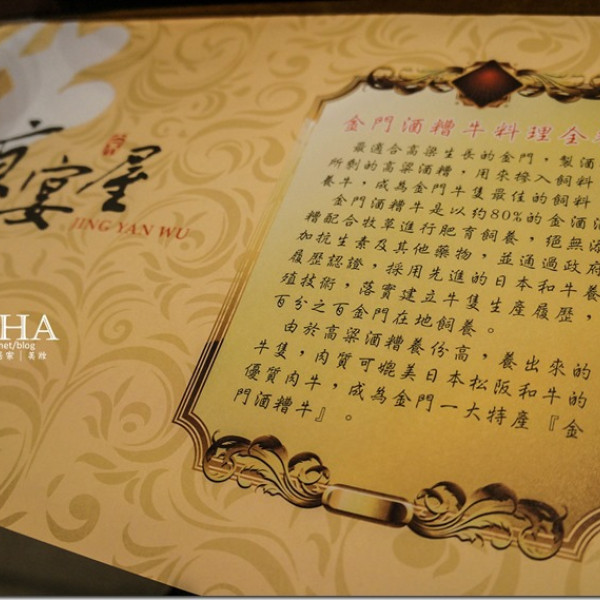 宴屋
JING YAN WU
HA
net/blog
美妝
金門酒糟牛料理全
最適合高梁生長的金門，製酒
所剩的高粱酒糟，用來摻入飼料
養牛，成為金門牛隻最佳的飼料
金門酒糟牛是以約80%的金酒酒
糟配合牧草進行肥育飼養，絕無添
加抗生素及其他藥物，並通過政府
履歷認證，採用先進的日本和牛養
殖技術，落實建立牛隻生產履歷，
百分之百金門在地飼養。
由於高粱酒糟養份高，養出來的
牛隻，肉質可媲美日本松阪和牛的
優質肉牛，成為金門一大特產『金
門酒糟牛』。